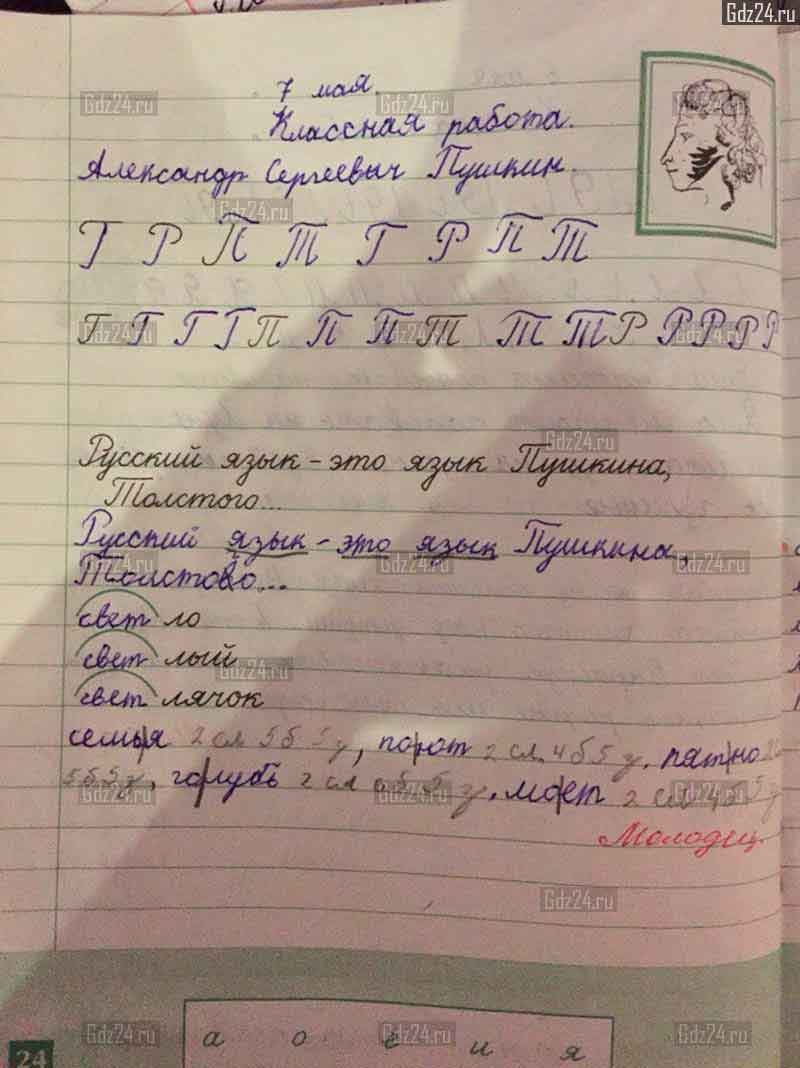 Gdz24.ru
7 мая.
Классная работа.
Александр Сергеевич Пушкин.
Г Р П Т Г Р П Т
Г Г Г Г П П П Т Т Т Р Р Р Р Р
Русский язык - это язык Пушкина,
Толстого...
Русский язык - это язык Пушкина,
Толстово...
свет ло
свет лый
свет лячок
семья 2 сл 5б 5з, поют 2 сл. 4б 5з. пятно
5б5з, голубь 2 сл 6б 5з. моет 2 сл 4б 5з
Молодец.
а о е и я
24